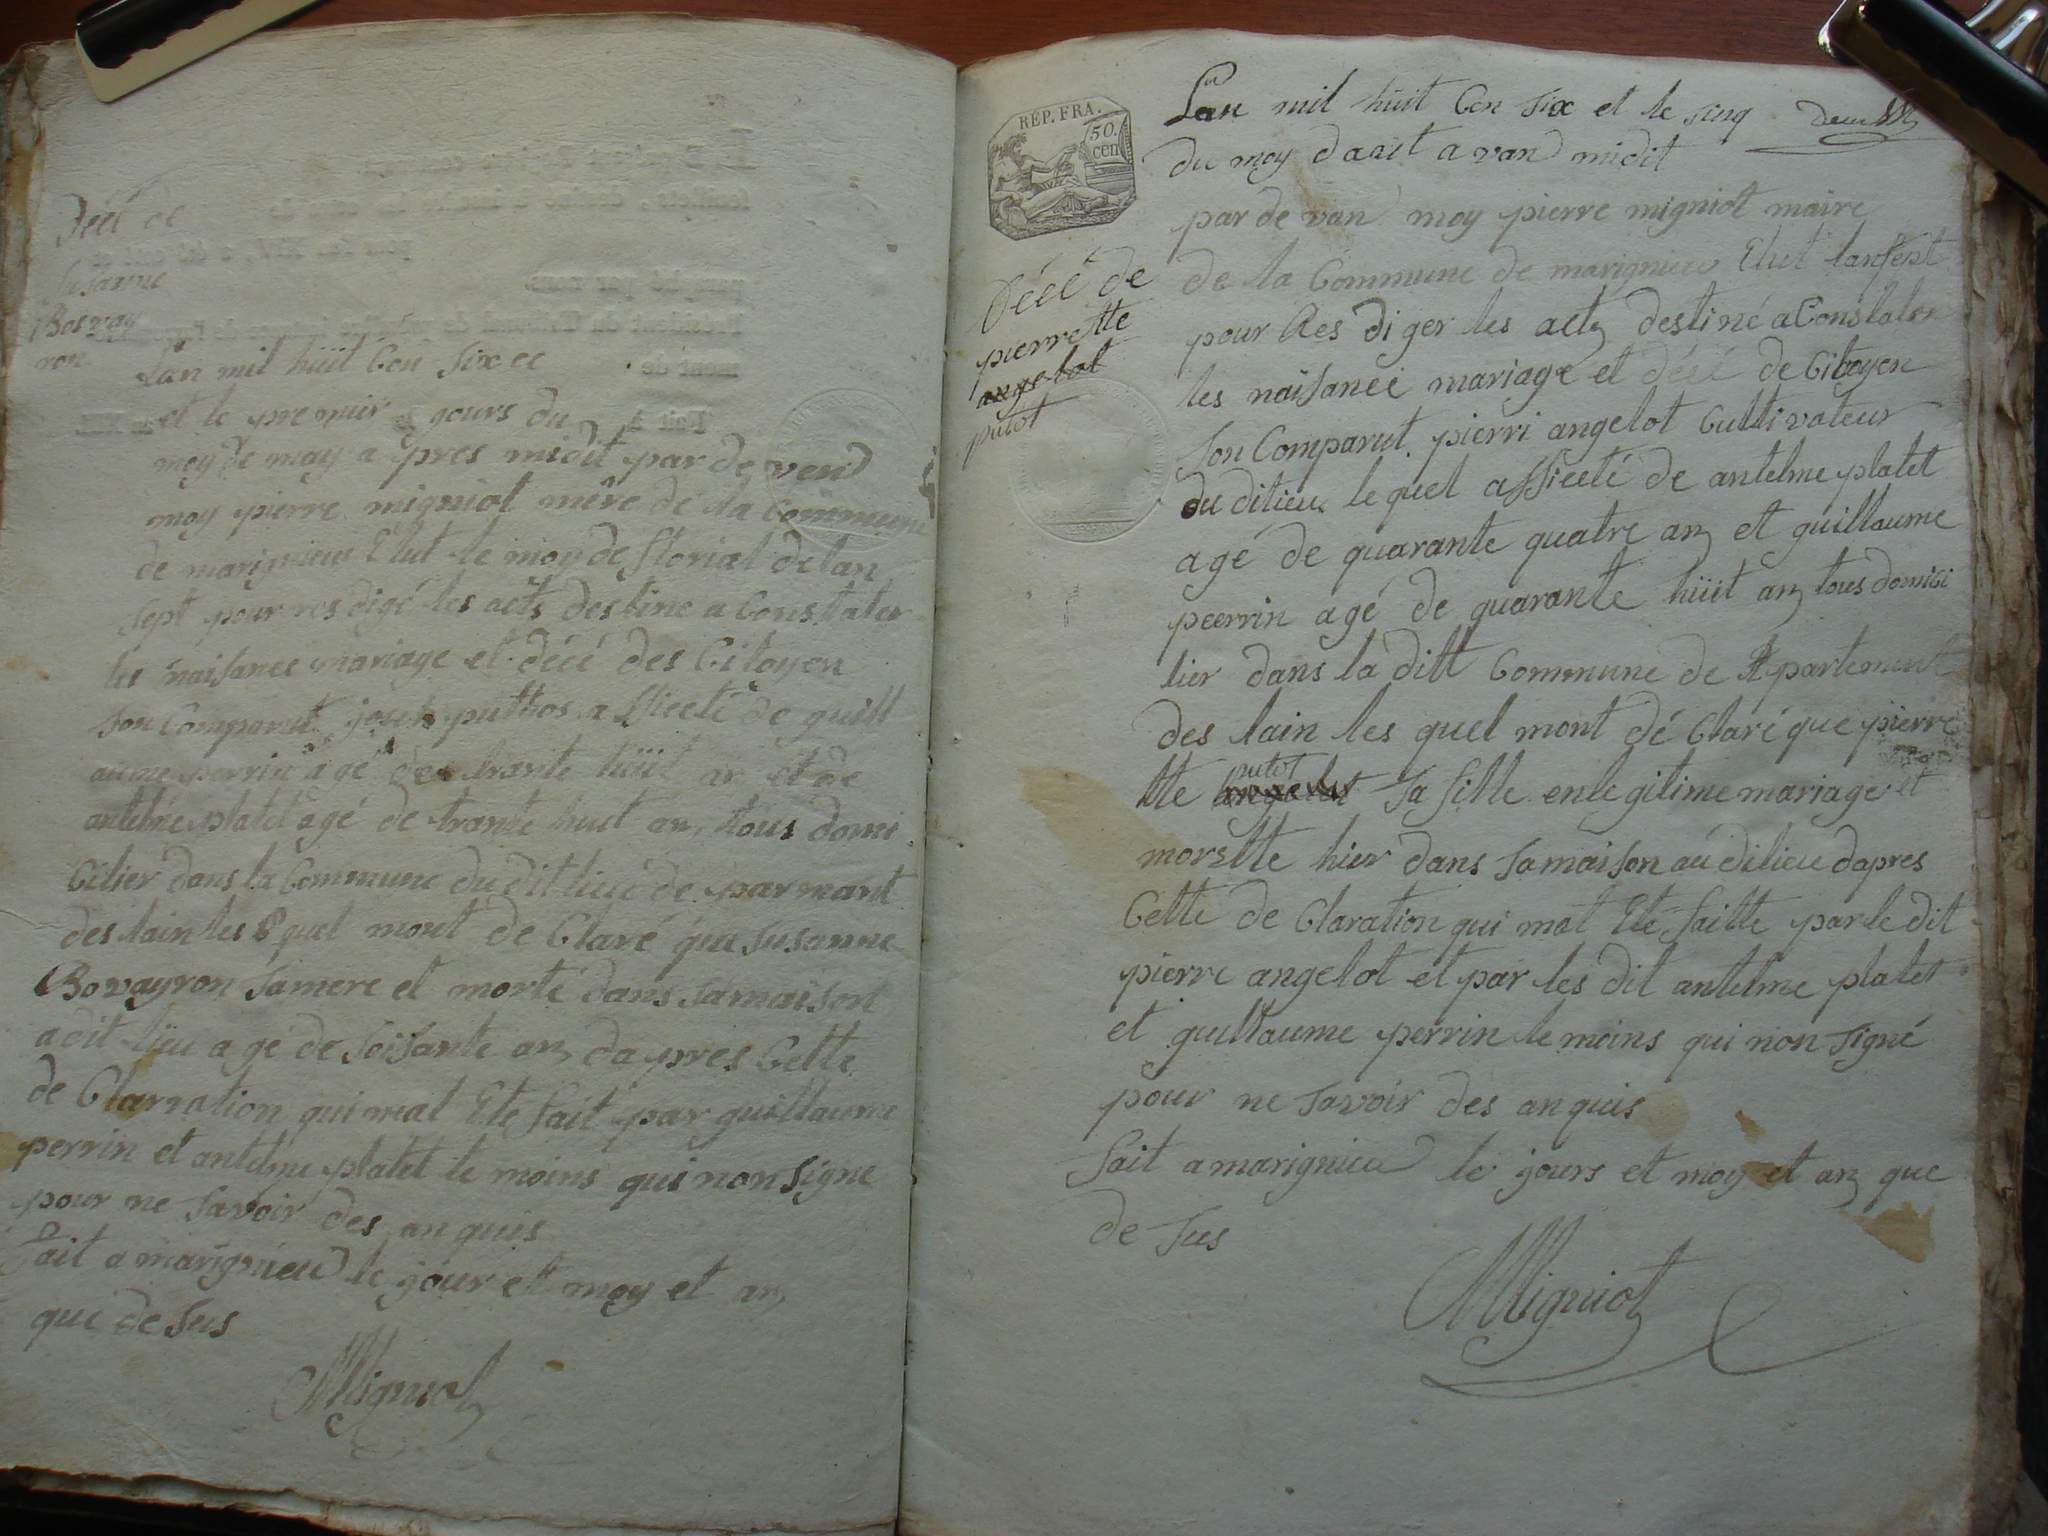 Décé de
Susanne
Bosvay
ron
Lan mil huit Cen Six et
et le premier gours du
moy de may a pres midit par de vend
moy pierre migniot mêre de la Commune
de marignieu Elut le moy de florial delan
sept pour res digé les acts destine a Constater
les naisance mariage et décé des Citoyen
Son Comparut joseh puthos assiecté de guill
aume perrin agé de trante huit an et de
antelme platet agé de trante huit an tous domi
Cilier dans la Commune du dit lieu de parmant
des lain les quel mont de Claré que Susanne
Bovayron Samere et morte dans Samaison
a dit lieu agé de Soisante an dapres Cette
de Clarration qui mat Ete fait par guillaume
perrin et antelme platet te moins qui non Signe
pour ne Savoir des an quis
fait a marignieu le jour et moy et an
que de Sus
Migniot
RÉP. FRA.
50.
cen
Décé de
pierrette
angelot
putot
Lan mil huit Cen Six et le sinq deux
du moy daout a van midit
par de van moy pierre migniot maire
de la Commune de marignieu Elut lansept
pour Res di ger les acts destiné a Constater
les naisance mariage et décé de Citoyen
Son Comparut pierri angelot Cultivateur
du ditieu le quel assiecté de antelme platet
agé de quarante quatre an et guillaume
peerrin agé de quarante huit an tous domici
lier dans la ditt Commune de partement
des lain les quel mont dé Claré que pierre
tte putot Sa fille en legitime mariage et
morstte hier dans Samaison au dilieu dapres
Cette de Claration qui mat Ete faitte par le dit
pierre angelot et par les dit antelme platet
et guillaume perrin te moins qui non Signé
pour ne Savoir des an quis
fait a marignieu le jours et moy et an que
de Sus
Migniot